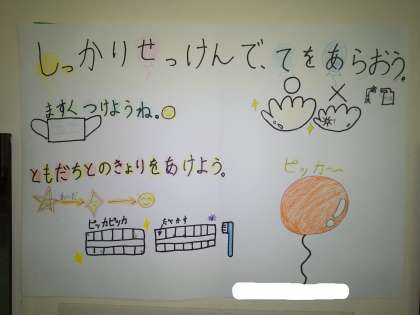 しっかりせっけんで、てをあらおう。
ますくつけようね。
ともだちとのきょりをあけよう。
ピッカ〜
ピッカピッカ